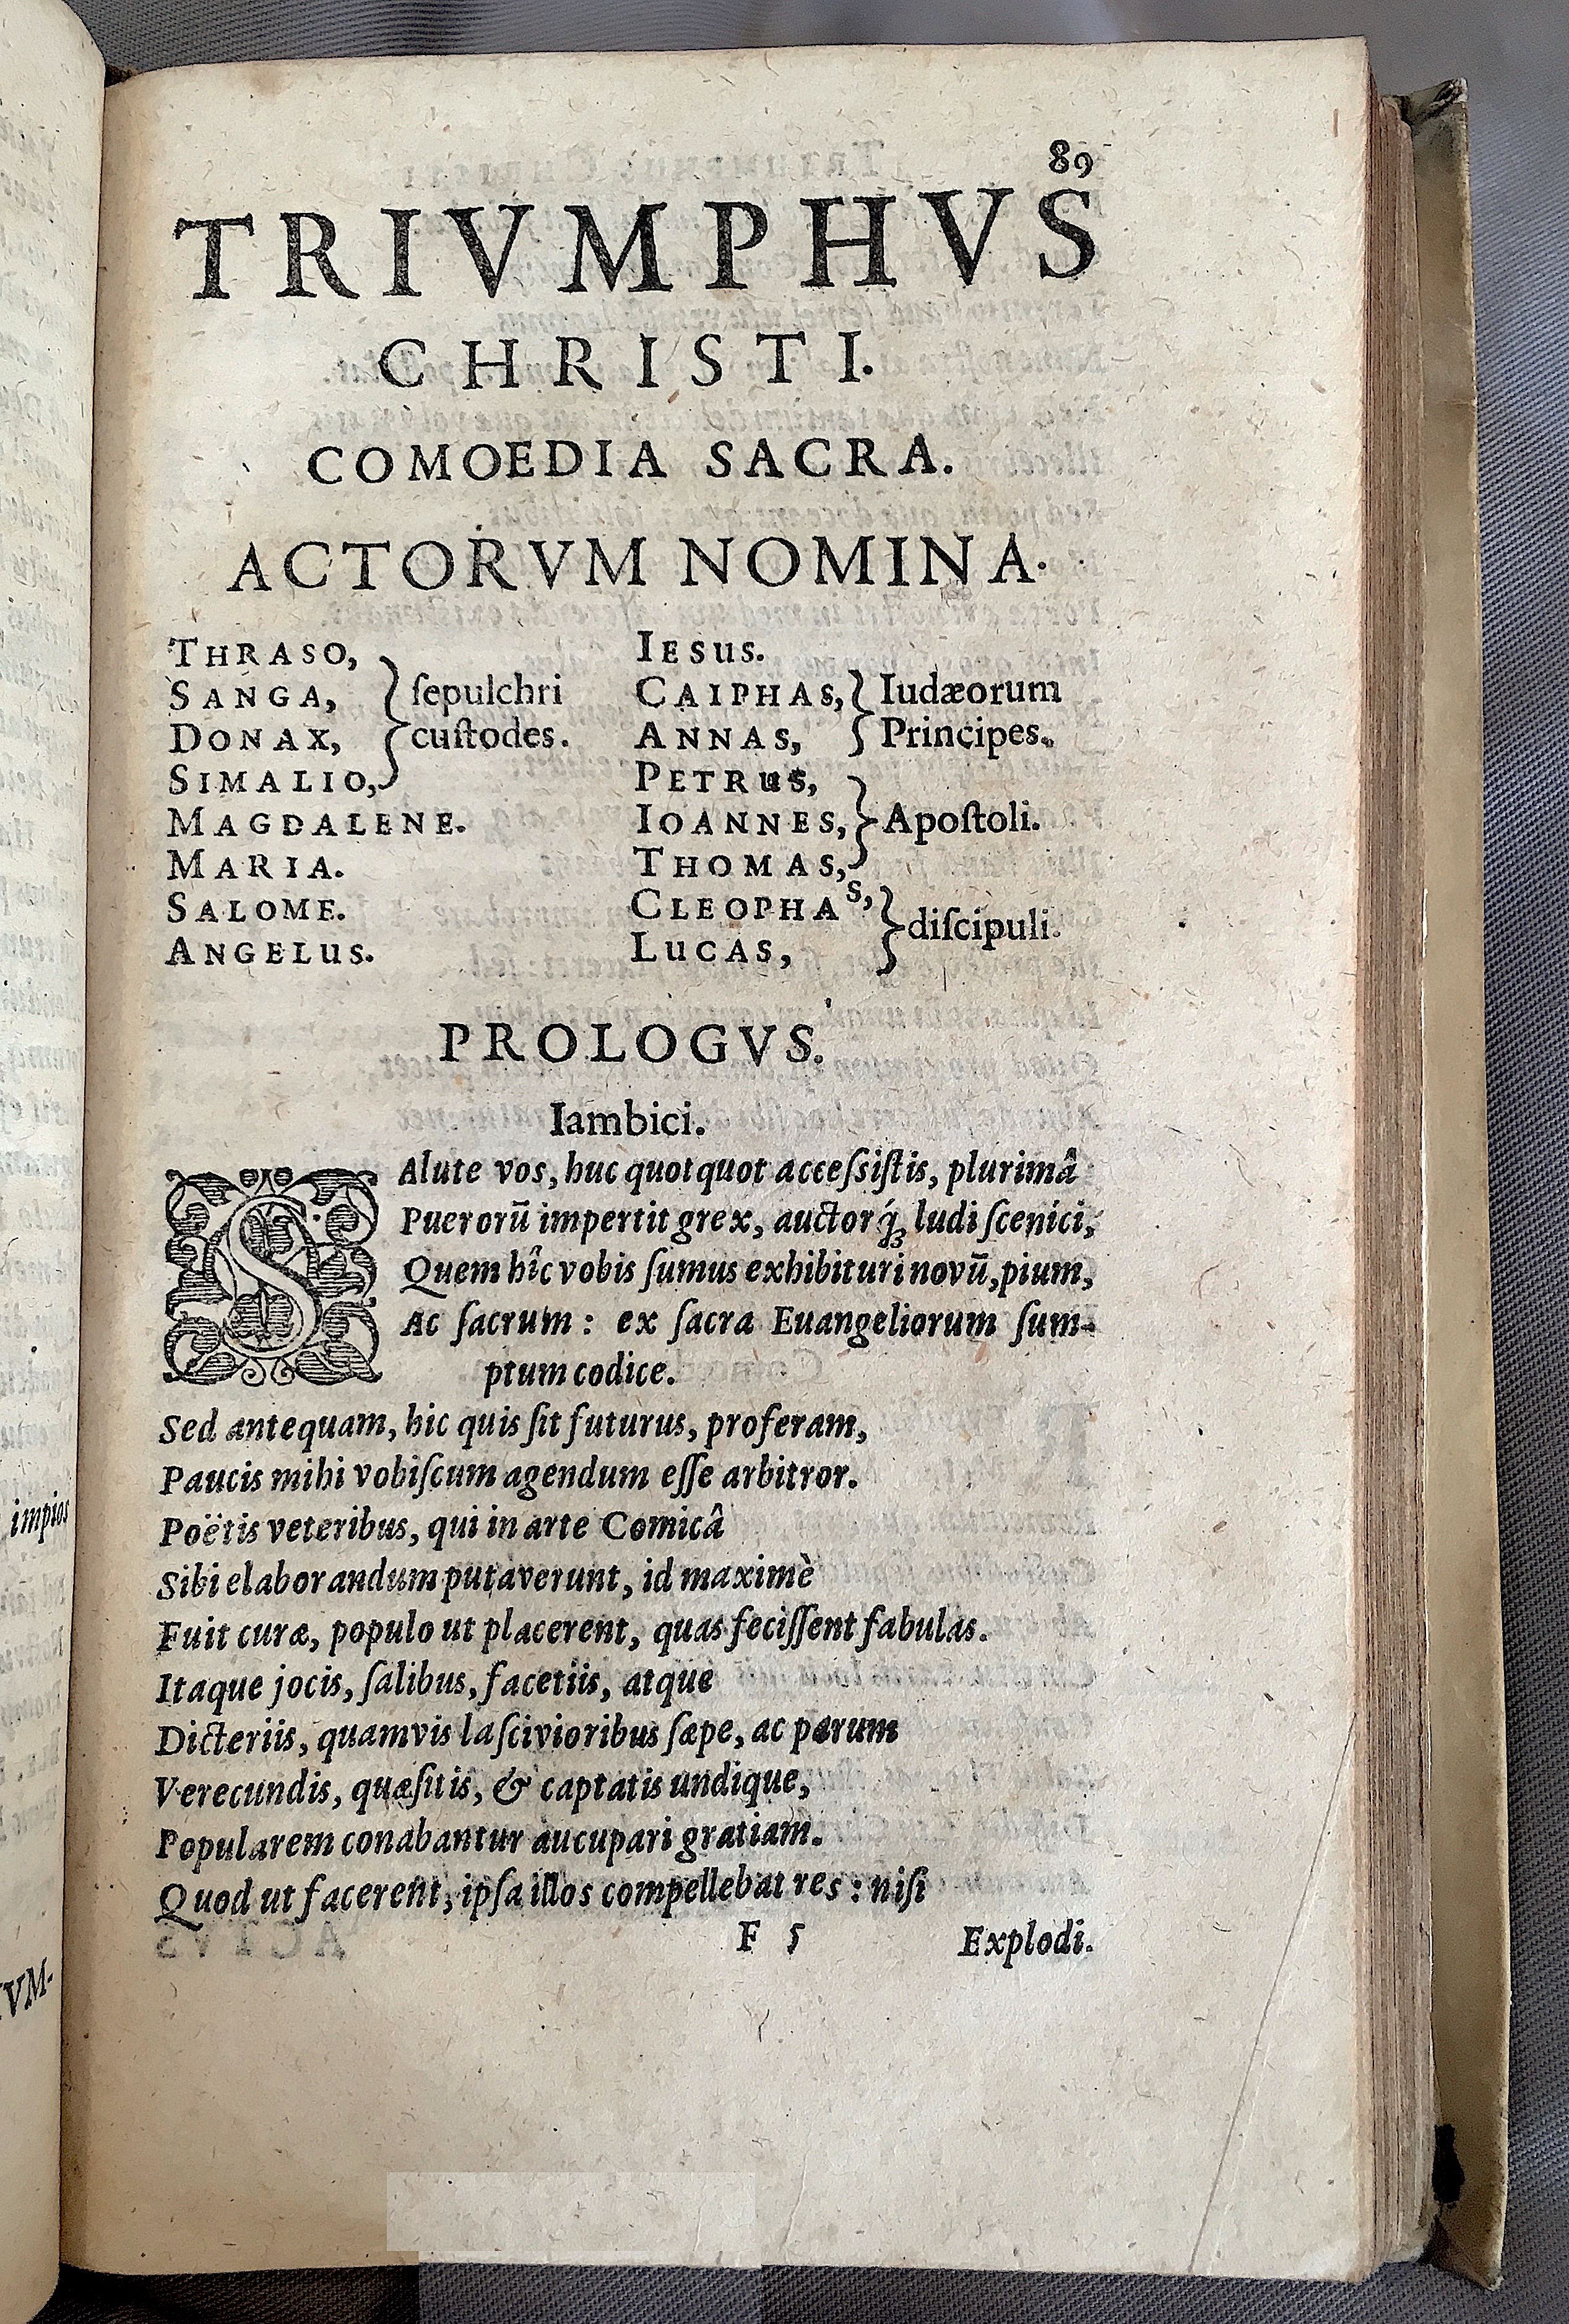 89
TRIVMPHVS
CHRISTI.
COMOEDIA SACRA.
ACTORVM NOMINA.
THRASO,
SANGA,
DONAX,
SIMALIO,
ſepulchri
cuſtodes.
MAGDALENE.
MARIA.
SALOME.
ANGELUS.
IESUS.
CAIPHAS,
ANNAS,
Iudæorum
Principes.
PETRUS,
IOANNES,
THOMAS,
Apoſtoli.
CLEOPHAS,
LUCAS,
diſcipuli.
PROLOGVS.
Iambici.
SAlute vos, huc quotquot acceſsiſtis, plurimâ
Puerorū impertit grex, auctorq́ꝫ ludi ſcenici,
Quem hîc vobis ſumus exhibituri novū, pium,
Ac ſacrum: ex ſacra Euangeliorum ſum-
ptum codice.
Sed antequam, hic quis ſit futurus, proferam,
Paucis mihi vobiſcum agendum eſſe arbitror.
Poëtis veteribus, qui in arte Comicâ
Sibi elaborandum putaverunt, id maximè
Fuit curæ, populo ut placerent, quas feciſſent fabulas.
Itaque jocis, ſalibus, facetiis, atque
Dicteriis, quamvis laſcivioribus ſæpe, ac parum
Verecundis, quæſitis, & captatis undique,
Popularem conabantur aucupari gratiam.
Quod ut facerent, ipſa illos compellebat res: niſi
F 5
Explodi.
impios
VM-